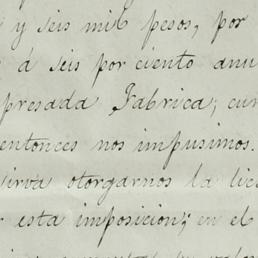 y seis mil pesos, por
á seis por ciento anu
presada Fabrica; cu
entonces nos impusimos.
sirva otorgarnos la lic
esta imposicion; en el